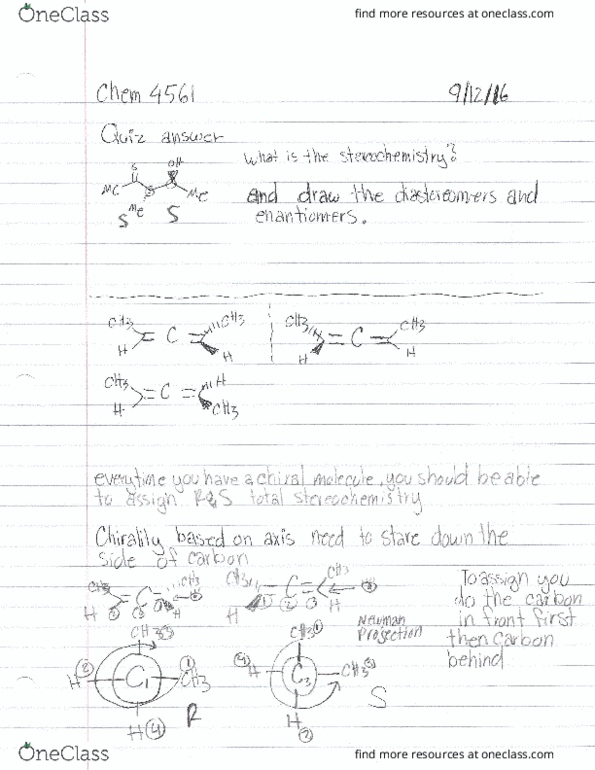 OneClass
find more resources at oneclass.com
Chem 4561
9/12/16
Quiz answer
What is the stereochemistry?
OH
Me
Me
Me
S
S
and draw the diastereomers and
enantiomers.
CH3
C
CH3
H
H
CH3
C
CH3
H
H
CH3
C
H
H
CH3
everytime you have a chiral molecule, you should be able
to assign R&S total stereochemistry
Chirality based on axis need to stare down the
side of carbon
CH3
C
CH3
H
H
CH3
C
CH3
H
H
① ② ③
To assign you
do the carbon
in front first
then carbon
behind
Newman
Projection
CH3
H
C1
① CH3
H ④
R
CH3 ①
④ H
C3
CH3
H
②
S
OneClass
find more resources at oneclass.com